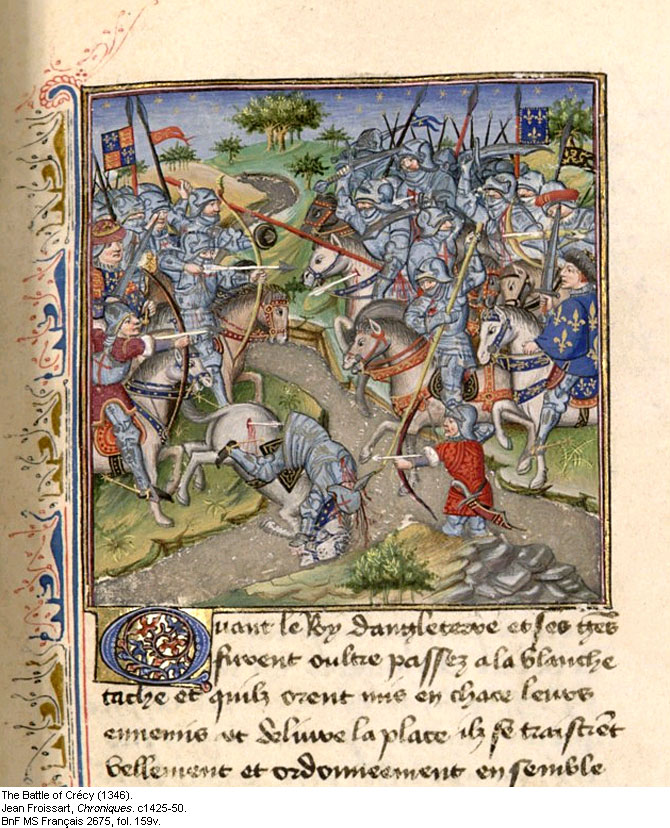 Quant le Roy dangleterre et ses gẽs
furent oultre passez a la blanche
tache et quilz orent mis en chace leurs
ennemis et deliure la place ilz se traistrẽt
bellement et ordonneement ensemble
The Battle of Crécy (1346).
Jean Froissart, Chroniques. c1425-50.
BnF MS Français 2675, fol. 159v.